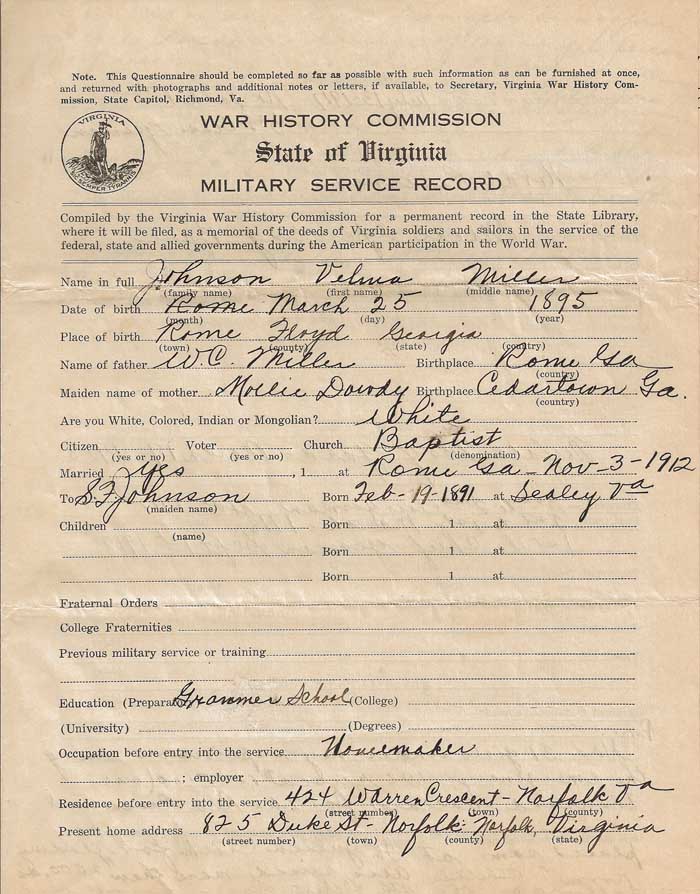 Note. This Questionnaire should be completed so far as possible with such information as can be furnished at once,
and returned with photographs and additional notes or letters, if available, to Secretary, Virginia War History Com-
mission, State Capitol, Richmond, Va.
VIRGINIA
SIC SEMPER TYRANNIS
WAR HISTORY COMMISSION
State of Virginia
MILITARY SERVICE RECORD
Compiled by the Virginia War History Commission for a permanent record in the State Library,
where it will be filed, as a memorial of the deeds of Virginia soldiers and sailors in the service of the
federal, state and allied governments during the American participation in the World War.
Name in full Johnson Velma Miller
(family name) (first name) (middle name)
Date of birth Rome March 25 1895
(month) (day) (year)
Place of birth Rome Floyd Georgia
(town) (county) (state) (country)
Name of father W.C. Miller Birthplace Rome Ga
(country)
Maiden name of mother Mollie Dowdy Birthplace Cedartown Ga.
(country)
Are you White, Colored, Indian or Mongolian? White
Citizen Voter Church Baptist
(yes or no) (yes or no) (denomination)
Married yes , 1 at Rome Ga - Nov-3-1912
To S.F. Johnson Born Feb-19-1891 at Sealey Va
(maiden name)
Children Born 1 at
(name)
Born 1 at
Born 1 at
Fraternal Orders
College Fraternities
Previous military service or training
Education (Prepara Grammer School (College)
(University) (Degrees)
Occupation before entry into the service Homemaker
; employer
Residence before entry into the service 424 Warren Crescent - Norfolk Va
(street number) (town) (county)
Present home address 825 Duke St - Norfolk: Norfolk, Virginia
(street number) (town) (county) (state)